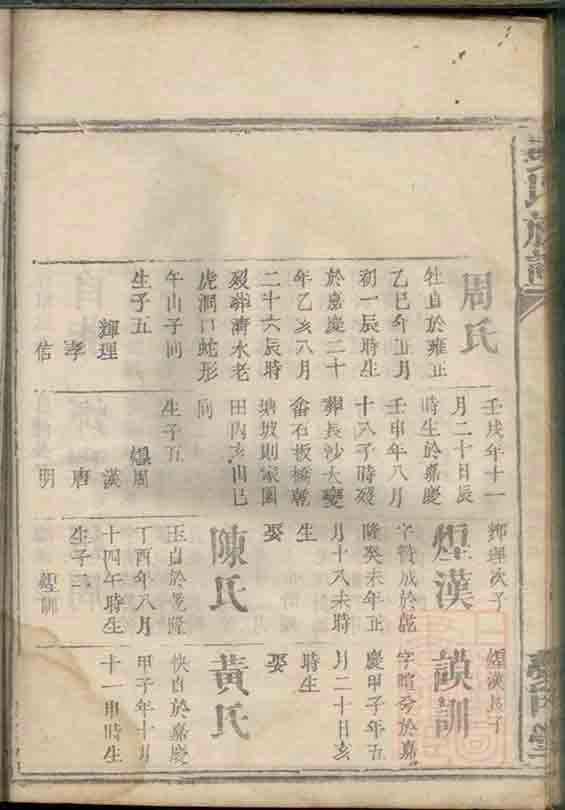 氏族譜
周氏
牡自於雍正
乙巳年正月
初一辰時生
於嘉慶二十
年乙亥八月
二十六辰時
歿葬清水老
虎洞口蛇形
午山子向
生子五
輝理
孝
信
壬戌年十一
月二十日辰
時生於嘉慶
壬申年八月
十八子時歿
葬長沙大
畬石板橋乾
塘坡則家園
田內亥山巳
向
生子五
煜周
漢
唐
明
輝理次子
煜漢
字贊成於乾
隆癸未年正
月十八未時
生
娶
陳氏
玉自於乾隆
丁酉年八月
十四午時生
生子二
訓
煜漢長子
謨訓
字暄兮於嘉
慶甲子年五
月二十日亥
時生
娶
黃氏
快自於嘉慶
甲子年十月
十一申時生